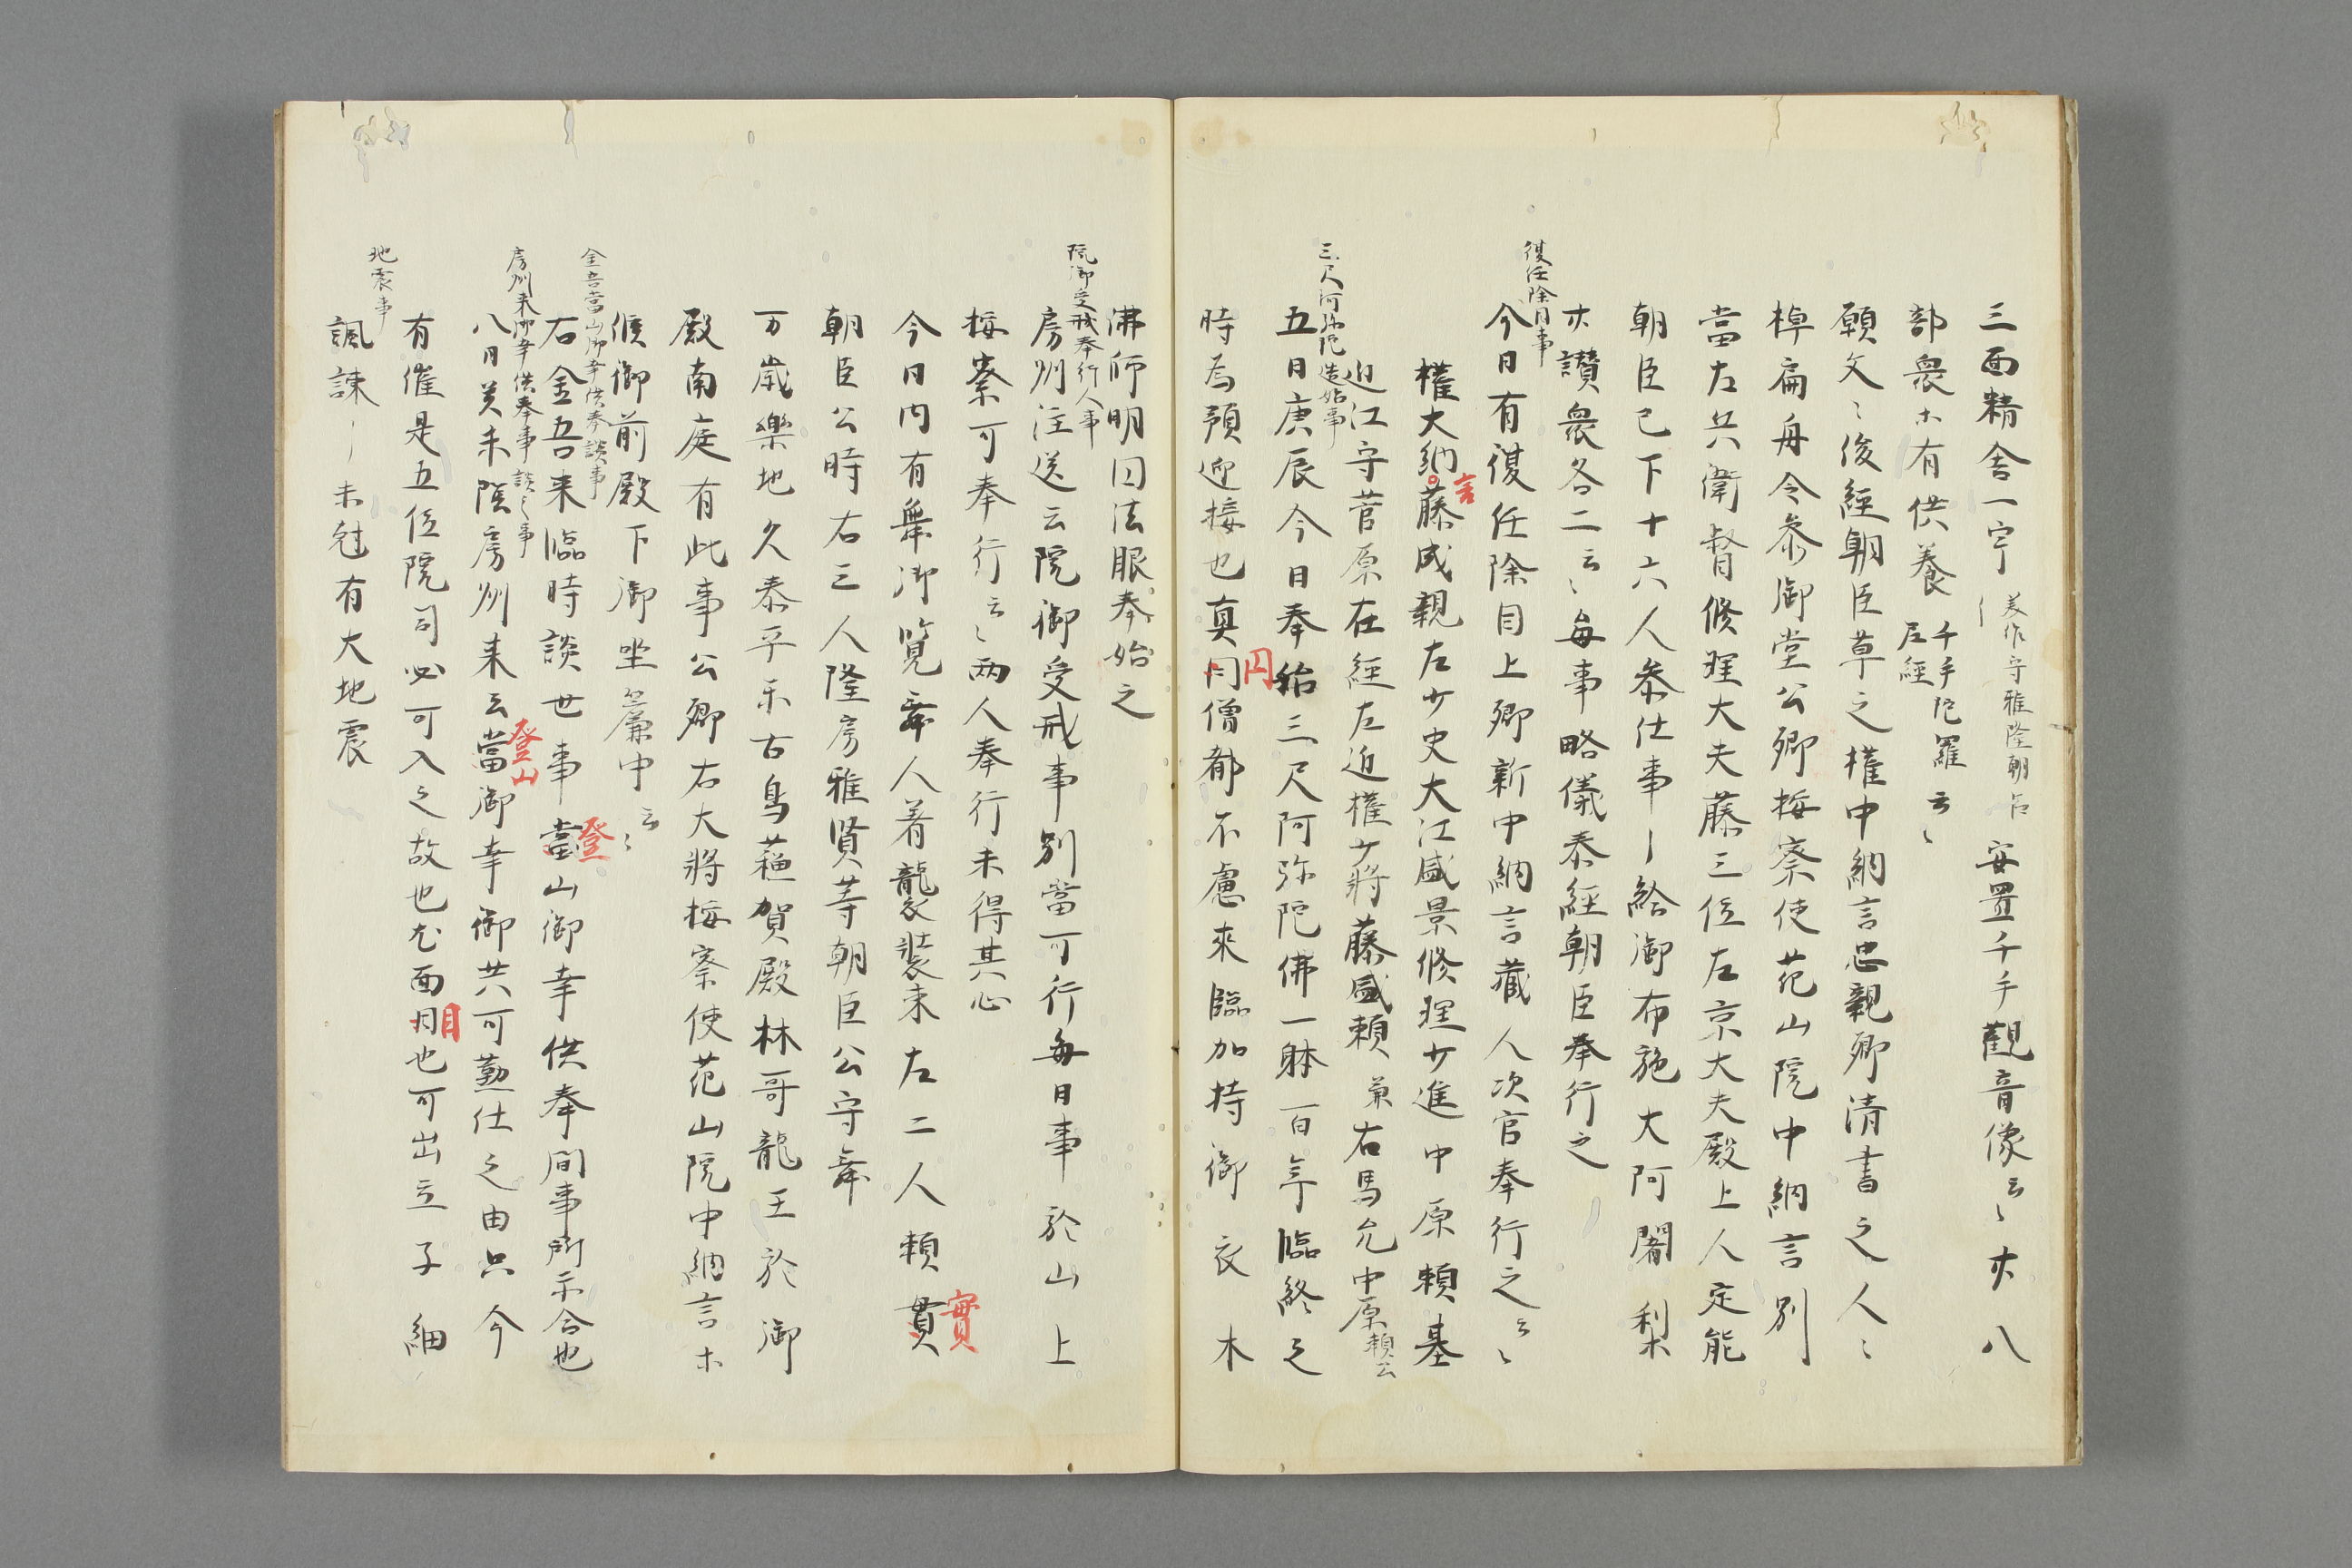 三面精舎一宇 美作守雅隆朝臣 安置千手觀音像云〻 亦八
部衆木有供養 千手陀羅尼經 云〻
願文〻後經朝臣草之權中納言忠親卿清書之人〻
棹扁舟令参御堂公卿按察使花山院中納言別
當左兵衛督修理大夫藤三位左京大夫殿上人定能
朝臣已下十六人参仕事〡給御布施大阿闍梨
亦讃衆各二云〻毎事略儀泰経朝臣奉行之
復任除目事
今日有復任除目上卿新中納言藏人次官奉行之云〻
權大納藤成親左少史大江盛景修理少進中原頼基
言
近江守菅原在經左近權少將藤盛頼兼右馬允中原頼云
三尺阿弥陀造始事
五日庚辰今日奉始三尺阿弥陀佛一躰百年臨終之
時為預迎接也真円僧都不慮来臨加持御衣木
円
佛師明円法眼奉始之
院御受戒奉行人事
房州注送云院御受戒事別當可行毎日事於山上
按察可奉行云〻両人奉行未得其心
今日内有舞御覧舞人着襲装束左二人頼貫
實
朝臣公時右三人隆房雅賢等朝臣公守舞
万歳樂地久泰平樂古鳥蘓賀殿林哥龍王於御
殿南庭有此事公卿右大將按察使花山院中納言木
候御前殿下御坐簾中云〻
金吾當山御幸供奉談事
右金吾来臨時談世事當山御幸供奉間事所示合也
登
房州来御幸供奉事談之事
八日癸未陰房州来云當御幸御共可勤仕之由只今
登山
有催是五位院司必可入之故也尤面月也可出立子細
目
地震事
諷諫〡未尅有大地震